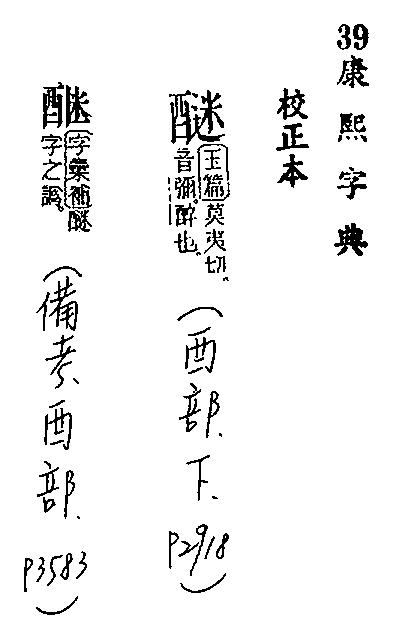 39康熙字典
校正本
醚
玉篇莫夷切。
音彌。醉也。
(酉部.下.P2918)
字彙補醚
字之譌。
(備考.酉部.P3583)